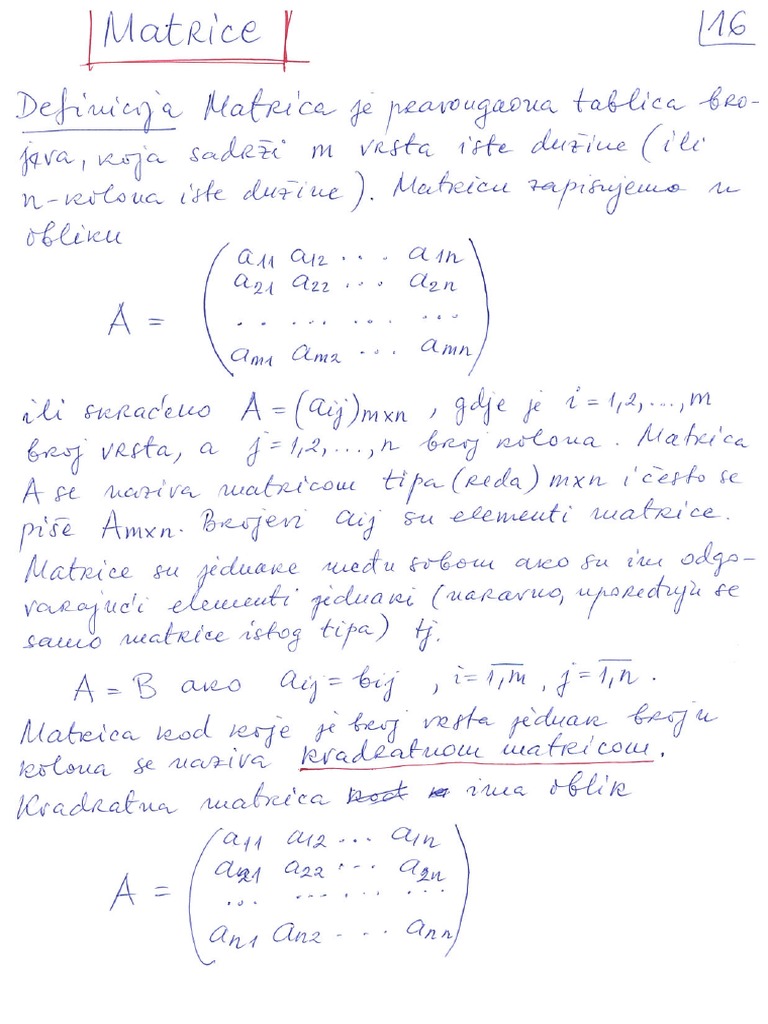 Matrice
16
Definicija Matrica je pravougaona tablica bro-
jeva, koja sadrži m vrsta iste dužine (ili
n-kolona iste dužine). Matricu zapisujemo u
obliku
a11 a12 ... a1n
a21 a22 ... a2n
A =
.. ... ... ...
am1 am2 ... amn
ili skraćeno A = (aij)mxn, gdje je i = 1,2,...,m
broj vrsta, a j = 1,2,...,n broj kolona. Matrica
A se naziva matricom tipa (reda) mxn i često se
piše Amxn. Brojevi aij su elementi matrice.
Matrice su jednake među sobom ako su im odgo-
varajući elementi jednaki (naravno, upoređuju se
samo matrice istog tipa) tj.
A = B ako aij = bij , i = 1,m , j = 1,n .
Matrica kod koje je broj vrsta jednak broju
kolona se naziva kvadratnom matricom.
Kvadratna matrica kod ima oblik
a11 a12 ... a1n
a21 a22 ... a2n
A =
... ... ... ...
an1 an2 ... ann